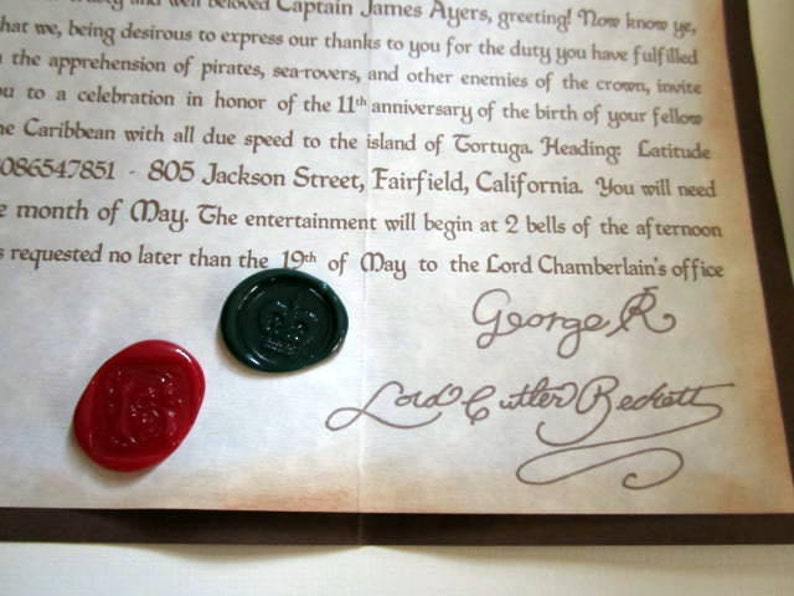 and well beloved Captain James Ayers, greeting! Now know ye,
hat we, being desirous to express our thanks to you for the duty you have fulfilled
the apprehension of pirates, sea-rovers, and other enemies of the crown, invite
ou to a celebration in honor of the 11th anniversary of the birth of your fellow
he Caribbean with all due speed to the island of Tortuga. Heading: Latitude
086547851 - 805 Jackson Street, Fairfield, California. You will need
e month of May. The entertainment will begin at 2 bells of the afternoon
s requested no later than the 19th of May to the Lord Chamberlain's office
George R
Lord Cutler Beckett